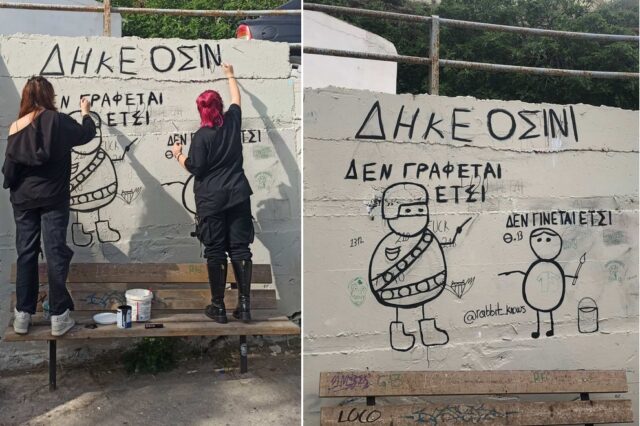 ΔΗΚΕ ΟΣΙΝ
ΔΕΝ ΓΡΑΦΕΤΑΙ
ΕΤΣΙ
ΔΕΝ ΕΤΣΙ
Θ.
ΔΗΚΕ ΟΣΙΝΙ
ΔΕΝ ΓΡΑΦΕΤΑΙ
ΕΤΣΙ
ΔΕΝ ΓΙΝΕΤΑΙ ΕΤΣΙ
Θ.13
1312
@rabbit_knows
LOCO